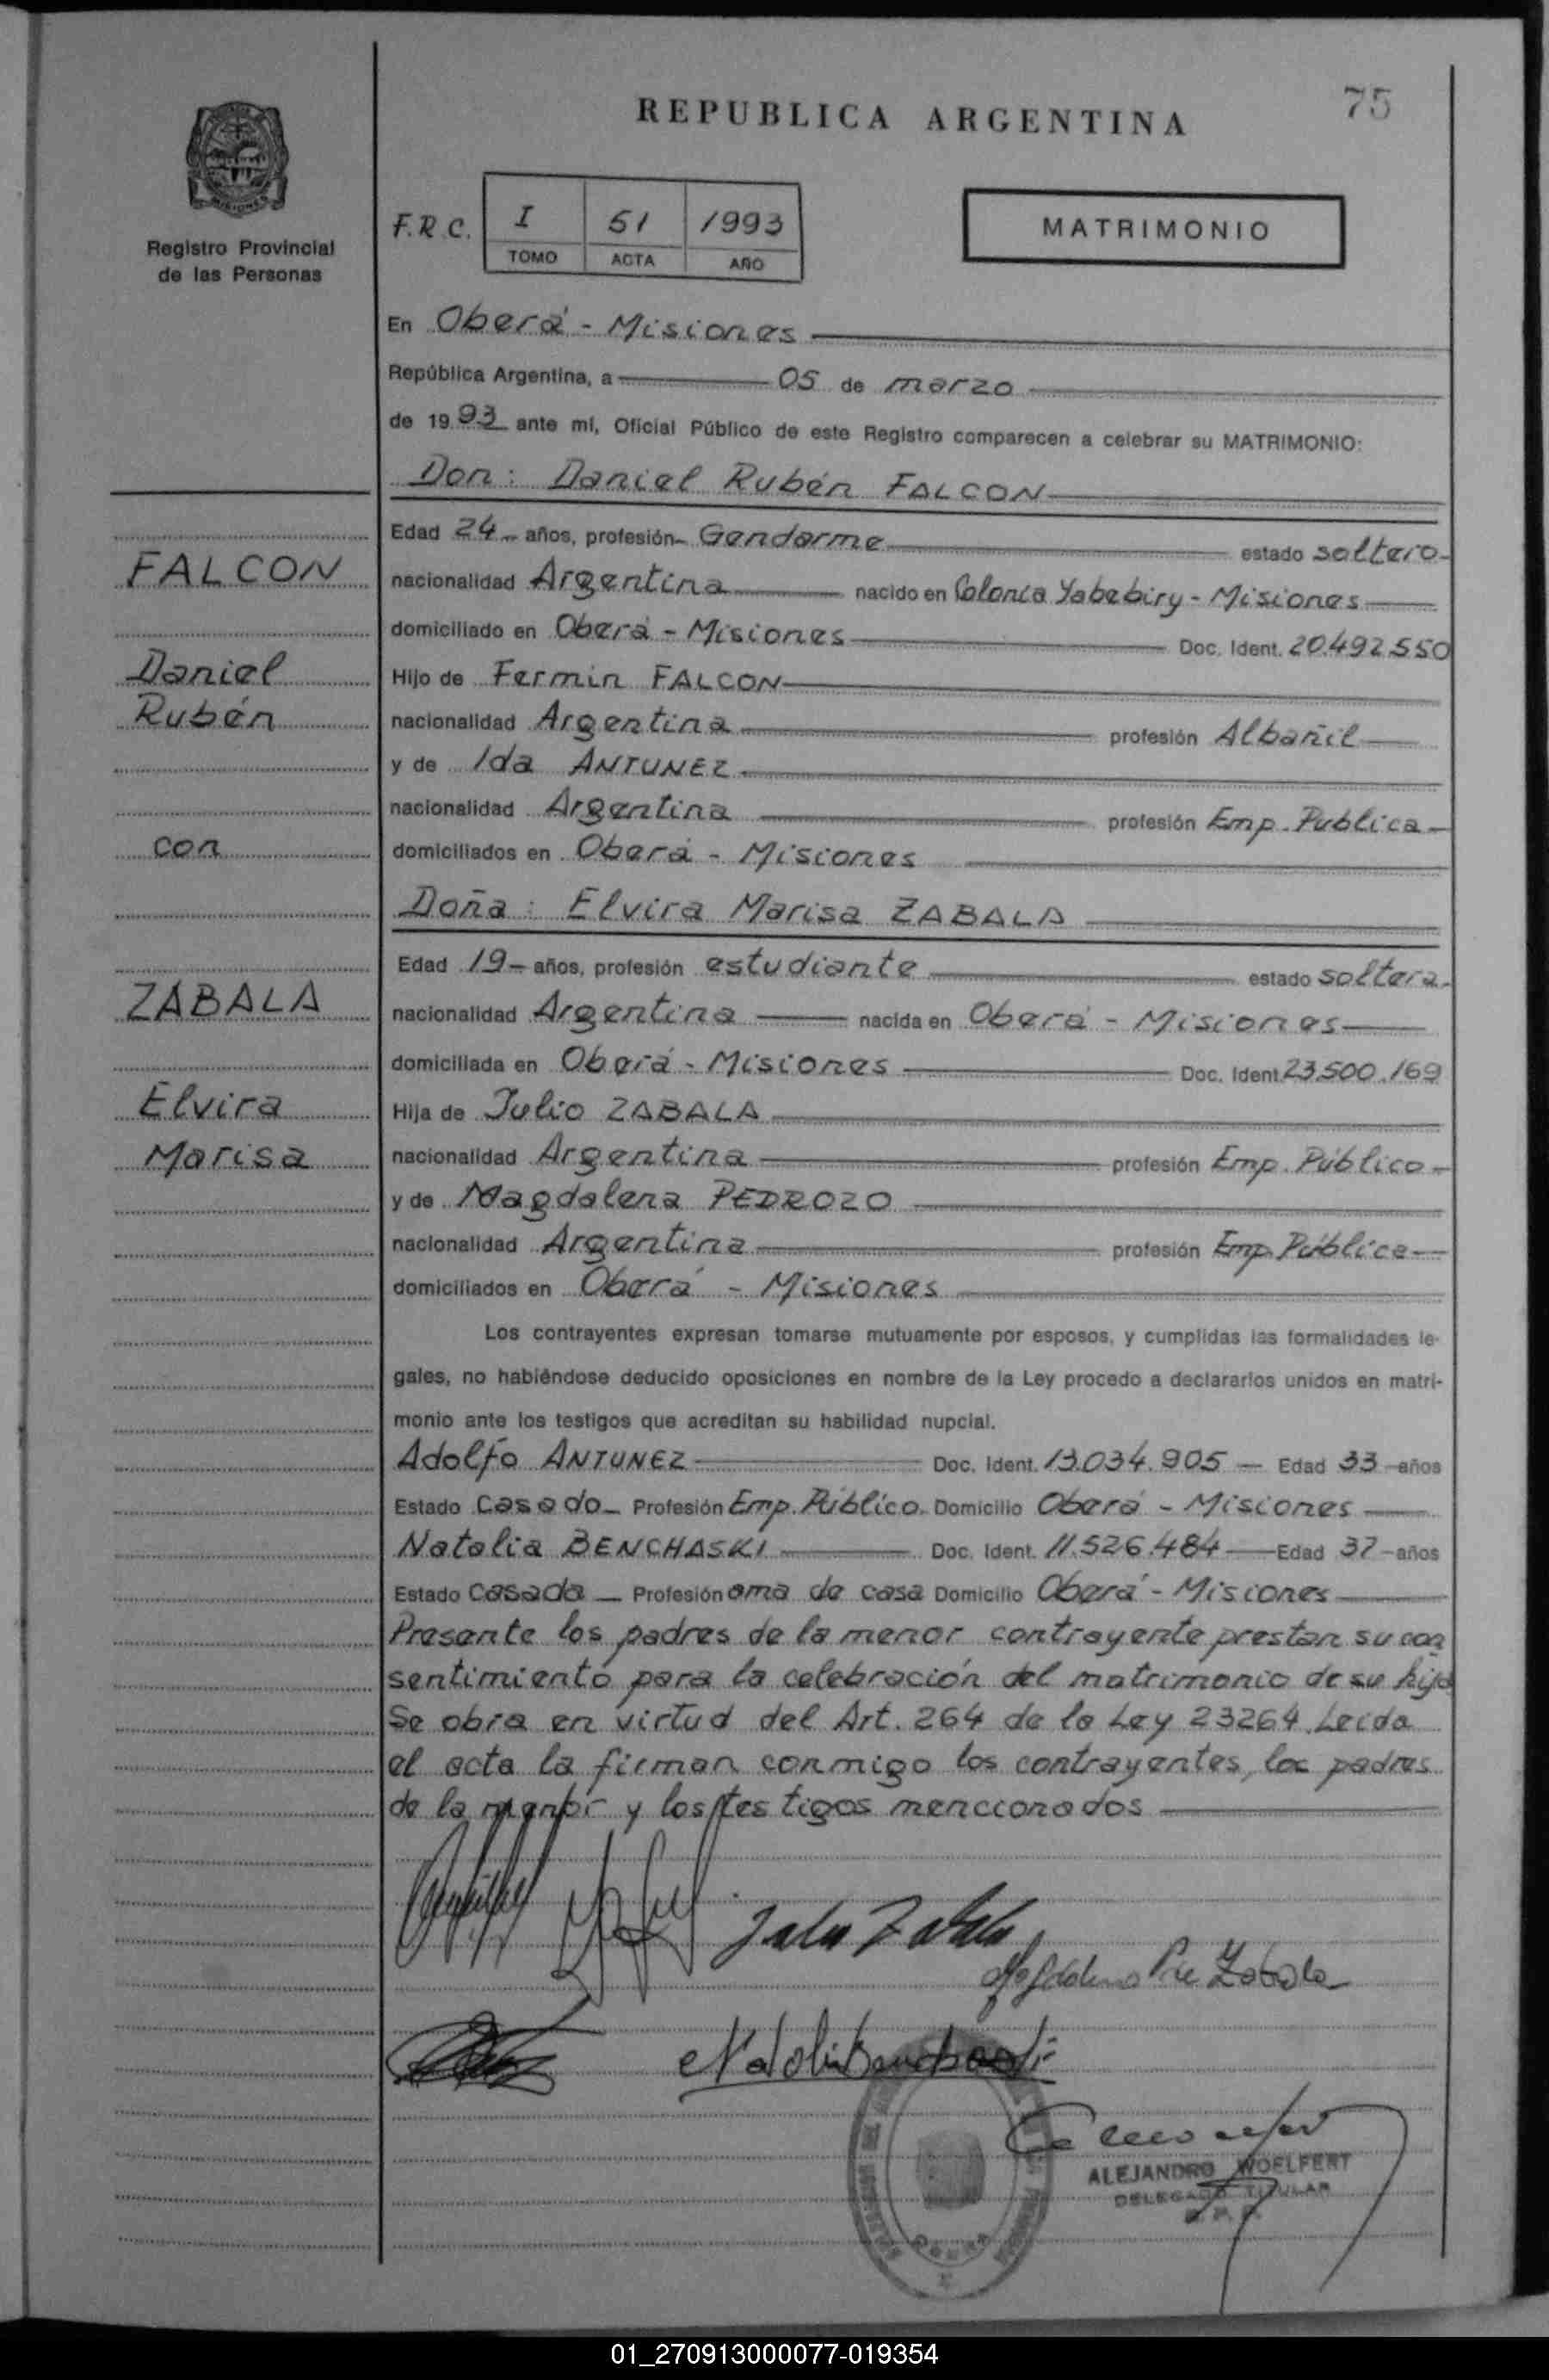 75
REPUBLICA ARGENTINA
MISIONES
Registro Provincial
de las Personas
F.R.C. I 51 1993
TOMO ACTA AÑO
MATRIMONIO
En Oberá - Misiones
República Argentina, a 05 de marzo
de 1993 ante mí, Oficial Público de este Registro comparecen a celebrar su MATRIMONIO:
Don: Daniel Rubén FALCON
Edad 24 años, profesión Gendarme estado soltero
FALCON
nacionalidad Argentina nacido en Colonia Yabebiry - Misiones
domiciliado en Oberá - Misiones Doc. Ident. 20.492.550
Daniel
Hijo de Fermin FALCON
Rubén
nacionalidad Argentina profesión Albañil
y de Ida ANTUNEZ
nacionalidad Argentina profesión Emp. Publica
con
domiciliados en Oberá - Misiones
Doña: Elvira Marisa ZABALA
Edad 19 años, profesión estudiante estado soltera
ZABALA
nacionalidad Argentina nacida en Oberá - Misiones
domiciliada en Oberá - Misiones Doc. Ident. 23.500.169
Elvira
Hija de Julio ZABALA
Marisa
nacionalidad Argentina profesión Emp. Público
y de Magdalena PEDROZO
nacionalidad Argentina profesión Emp. Pública
domiciliados en Oberá - Misiones
Los contrayentes expresan tomarse mutuamente por esposos, y cumplidas las formalidades le-
gales, no habiéndose deducido oposiciones en nombre de la Ley procedo a declararlos unidos en matri-
monio ante los testigos que acreditan su habilidad nupcial.
Adolfo ANTUNEZ Doc. Ident. 13.034.905 Edad 33 años
Estado Casado Profesión Emp. Público Domicilio Oberá - Misiones
Natalia BENCHASKI Doc. Ident. 11.526.484 Edad 37 años
Estado Casada Profesión ama de casa Domicilio Oberá - Misiones
Presente los padres de la menor contrayente prestan su con
sentimiento para la celebración del matrimonio de su hija
Se obra en virtud del Art. 264 de la Ley 23264. Leida
el acta la firman conmigo los contrayentes, los padres
de la menor y los testigos mencionados
Julio Zabala
Magdalena P de Zabala
Natalia Benchaski
ALEJANDRO WOELFERT
DELEGADO TITULAR
01_270913000077-019354